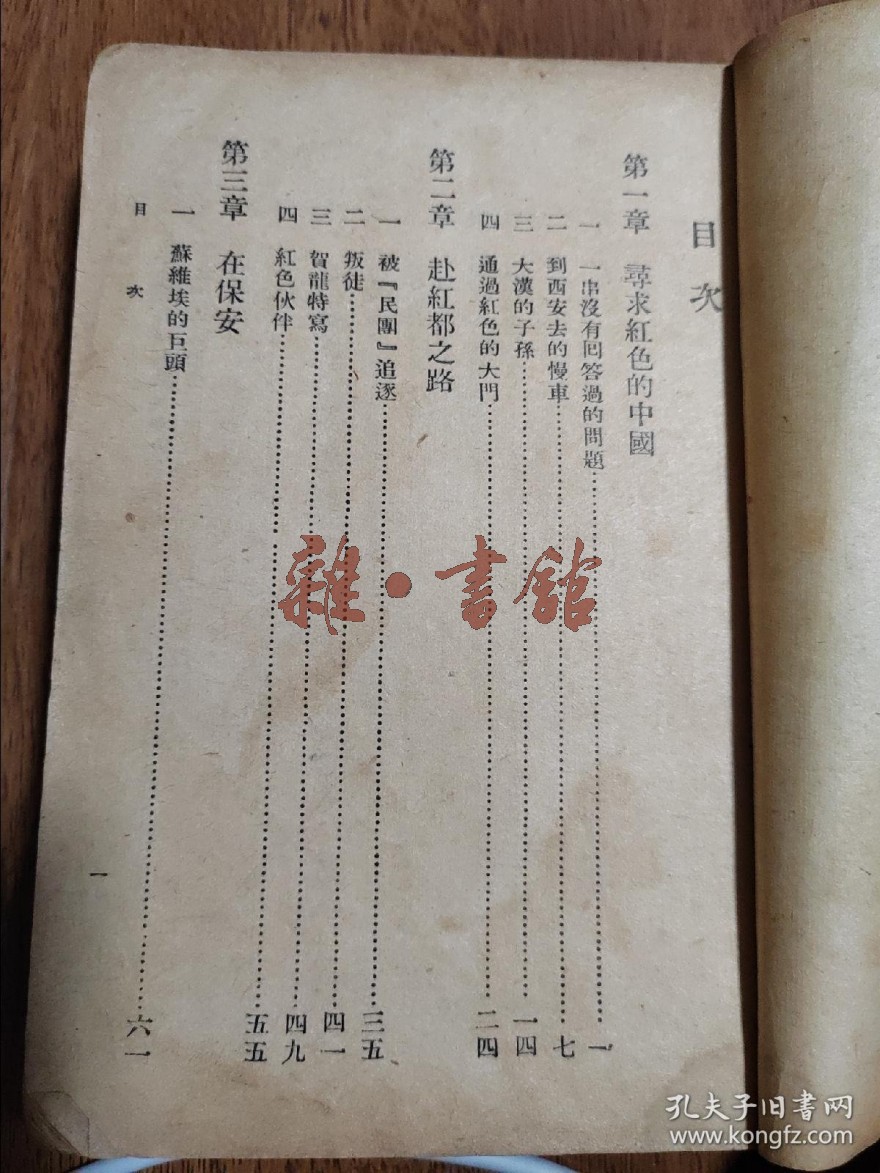 目次
第一章 尋求紅色的中國
一 一串沒有回答過的問題……一
二 到西安去的慢車……七
三 大漢的子孫……一四
四 通過紅色的大門……二四
第二章 赴紅都之路
一 被『民團』追逐……三五
二 叛徒……四一
三 賀龍特寫……四九
四 紅色伙伴……五五
第三章 在保安
一 蘇維埃的巨頭……六一
目次
一
雜·書館
孔夫子旧書网
www.kongfz.com